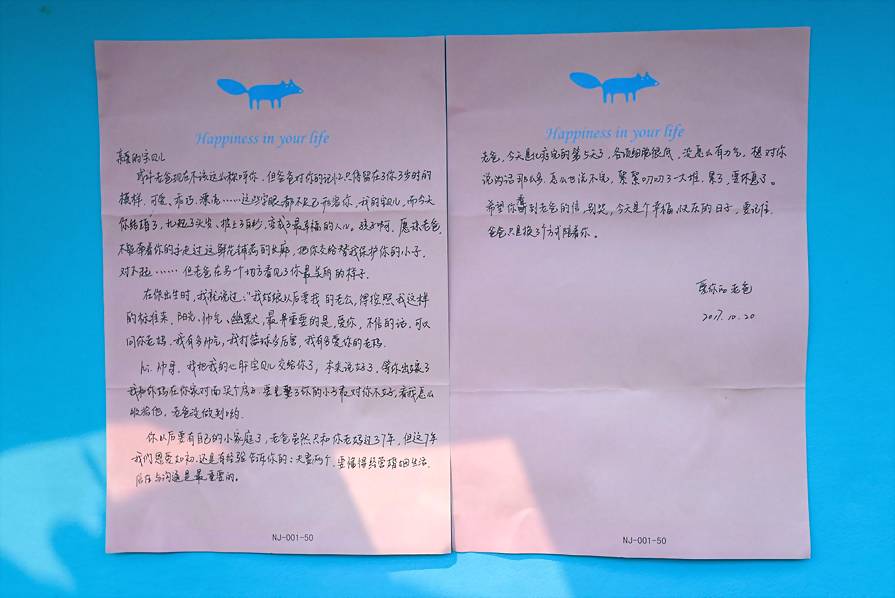 Happiness in your life
亲爱的宝贝儿
或许老爸现在不该这么称呼你，但爸爸对你的记忆只停留在了你3岁时的
模样，可爱、乖巧、漂亮……这些字眼都不足以形容你，我的宝贝儿，而今天
你结婚了，扎起了头发，披上了白纱，变成了最幸福的人儿。孩子啊，愿谅老爸，
不能牵着你的手走过这鲜花铺满的长廊，把你交给替我保护你的小子，
对不起……但老爸在另一个地方看见了你最美丽的样子。
在你出生时，我就说过："我姑娘以后要找的老公，得按照我这样
的标准来，阳光、帅气、幽默，最最重要的是，爱你，不信的话，可以
问你老妈，我有多帅气，我打篮球多厉害，我有多爱你的老妈。
我把我的心肝宝贝儿交给你了，本来说好了，等你出嫁了
我和你妈在你家对面买个房子，要是娶了你的小子敢对你不好，看我怎么
收拾他，老爸没做到哟。
你以后要有自己的小家庭了，老爸虽然只和你老妈过了7年，但这7年
我们恩爱如初，还是有经验告诉你的：夫妻两个，要懂得经营婚姻生活，
信任与沟通是最重要的。
NJ-001-50
Happiness in your life
老爸，今天是化疗完的第5天了，各项细胞很低，没怎么有力气，想对你
说的话那么多，怎么也说不完，絮絮叨叨了一大堆，累了，要休息了。
希望你看到老爸的信，别哭，今天是个幸福、快乐的日子，要记住，
爸爸只是换了个方式陪着你。
爱你的老爸
2017.10.20
NJ-001-50